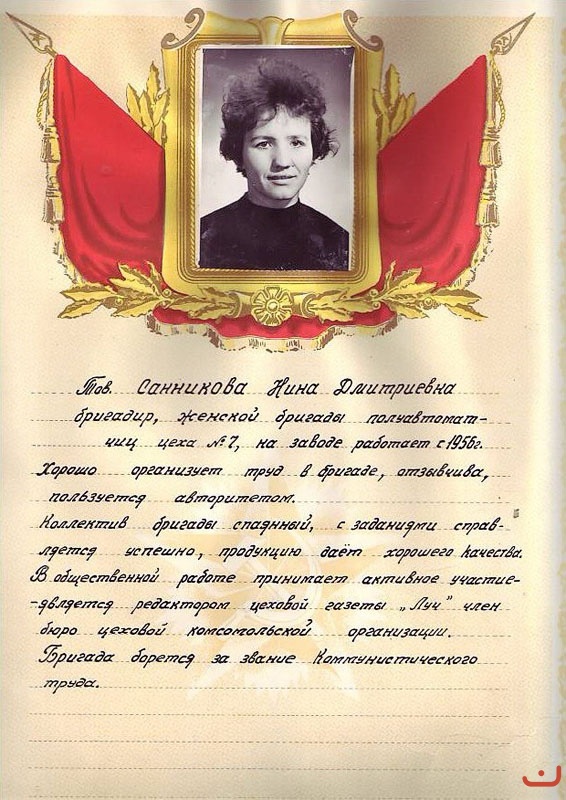 Тов. Санникова Нина Дмитриевна
бригадир, женской бригады полуавтомат-
чиц цеха №7, на заводе работает с 1956г.
Хорошо организует труд в бригаде, отзывчива,
пользуется авторитетом.
Коллектив бригады спаянный, с заданиями справ-
ляется успешно, продукцию даёт хорошего качества.
В общественной работе принимает активное участие-
-является редактором цеховой газеты „Луч" член
бюро цеховой комсомольской организации.
Бригада борется за звание Коммунистического
труда.